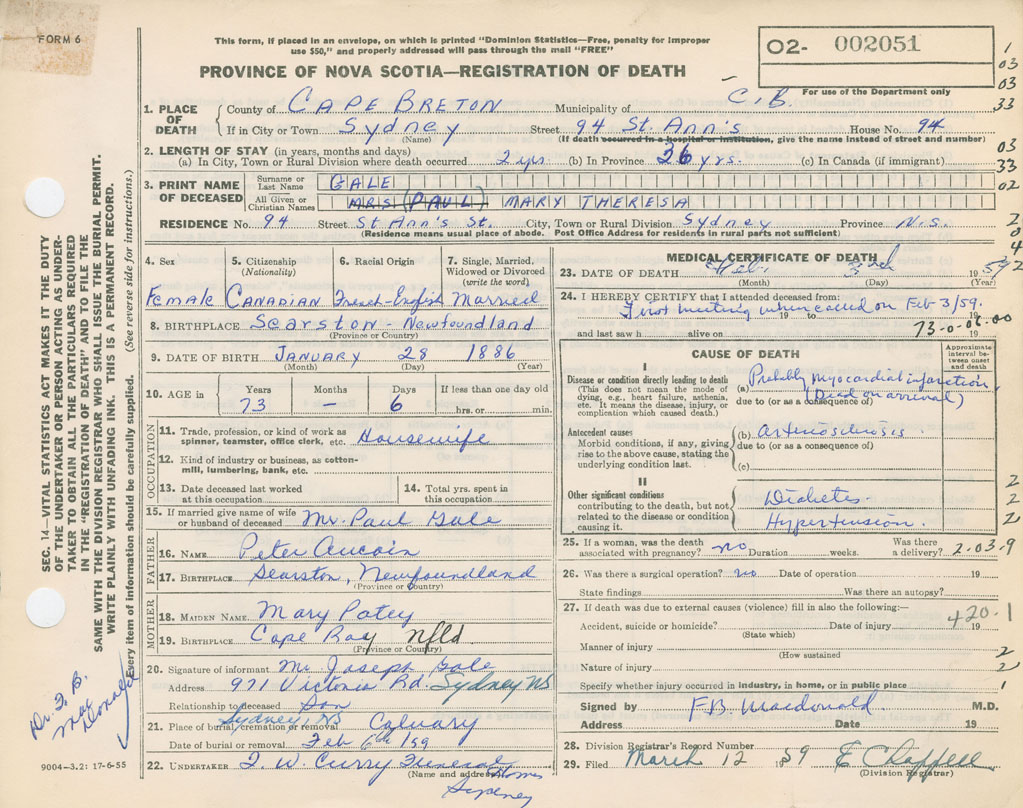 FORM 6
This form, if placed in an envelope, on which is printed "Dominion Statistics—Free, penalty for improper
use $50," and properly addressed will pass through the mail "FREE"
PROVINCE OF NOVA SCOTIA—REGISTRATION OF DEATH
O2- 002051
For use of the Department only
1
03
03
33
03
33
02
1. PLACE OF DEATH
County of CAPE BRETON Municipality of C.B.
If in City or Town Sydney Street 94 St. Ann's House No. 94
(Name) (If death occurred in a hospital or institution, give the name instead of street and number)
2. LENGTH OF STAY (in years, months and days)
(a) In City, Town or Rural Division where death occurred 2 yrs. (b) In Province 26 yrs. (c) In Canada (if immigrant)
3. PRINT NAME OF DECEASED
Surname or Last Name GALE
All Given or Christian Names MRS (PAUL) MARY THERESA
RESIDENCE No. 94 Street St Ann's St. City, Town or Rural Division Sydney Province N.S.
(Residence means usual place of abode. Post Office Address for residents in rural parts not sufficient)
4. Sex
Female
5. Citizenship
(Nationality)
Canadian
6. Racial Origin
French-English
7. Single, Married,
Widowed or Divorced
(write the word)
Married
8. BIRTHPLACE Searston - Newfoundland
(Province or Country)
9. DATE OF BIRTH January 28 1886
(Month) (Day) (Year)
10. AGE in
Years Months Days If less than one day old
73 — 6 hrs. or min.
OCCUPATION
11. Trade, profession, or kind of work as
spinner, teamster, office clerk, etc. Housewife
12. Kind of industry or business, as cotton-
mill, lumbering, bank, etc.
13. Date deceased last worked
at this occupation
14. Total yrs. spent in
this occupation
15. If married give name of wife
or husband of deceased Mr. Paul Gale
FATHER
16. NAME Peter Aucoin
17. BIRTHPLACE Searston, Newfoundland
(Province or Country)
MOTHER
18. MAIDEN NAME Mary Patey
19. BIRTHPLACE Cape Ray Nfld
(Province or Country)
20. Signature of informant Mr Joseph Gale
Address 971 Victoria Rd. Sydney NS
Relationship to deceased Son
Sydney, NS
21. Place of burial, cremation or removal Calvary
Date of burial or removal Feb 6th /59
22. UNDERTAKER T. W. Curry Funeral Home
(Name and address)
Sydney
MEDICAL CERTIFICATE OF DEATH
23. DATE OF DEATH Feb. 3rd 1959
(Month) (Day) (Year)
24. I HEREBY CERTIFY that I attended deceased from:
First meeting when called on Feb 3/59.
to 19
and last saw h alive on 19
73-0-06.00
CAUSE OF DEATH
Approximate
interval be-
tween onset
and death
I
Disease or condition directly leading to death
(This does not mean the mode of
dying, e.g., heart failure, asthenia,
etc. It means the disease, injury, or
complication which caused death.)
(a) Probably myocardial infarction
(Dead on arrival)
due to (or as a consequence of)
Antecedent causes
Morbid conditions, if any, giving
rise to the above cause, stating the
underlying condition last.
(b) arteriosclerosis
due to (or as a consequence of)
(c)
II
Other significant conditions
contributing to the death, but not
related to the disease or condition
causing it.
Diabetes
Hypertension.
25. If a woman, was the death
associated with pregnancy? no Duration weeks. Was there
a delivery?
2.03.9
26. Was there a surgical operation? no Date of operation 19
State findings Was there an autopsy?
27. If death was due to external causes (violence) fill in also the following:—
Accident, suicide or homicide? Date of injury 19
420.1
(State which)
Manner of injury
(How sustained
Nature of injury
Specify whether injury occurred in industry, in home, or in public place
Signed by F.B. Macdonald M.D.
Address Date 19
28. Division Registrar's Record Number
29. Filed March 12 1959 E Chappell
(Division Registrar)
SEC. 14—VITAL STATISTICS ACT MAKES IT THE DUTY
OF THE UNDERTAKER OR PERSON ACTING AS UNDER-
TAKER TO OBTAIN ALL THE PARTICULARS REQUIRED
IN THE "REGISTRATION OF DEATH" AND TO FILE THE
SAME WITH THE DIVISION REGISTRAR WHO SHALL ISSUE THE BURIAL PERMIT.
WRITE PLAINLY WITH UNFADING INK. THIS IS A PERMANENT RECORD.
Every item of information should be carefully supplied. (See reverse side for instructions.)
Dr. F. B.
Mac
Donald
9004-3.2: 17-6-55